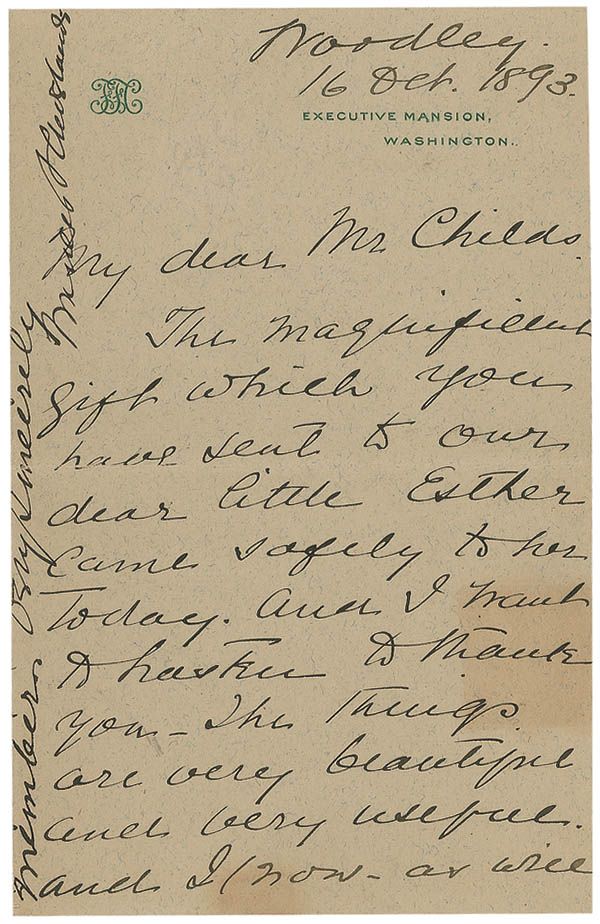 Woodley.
16 Oct. 1893.
EXECUTIVE MANSION,
WASHINGTON.
My dear Mr Childs.
The magnificent
gift which you
have sent to our
dear little Esther
came safely to her
Today. And I want
to hasten to thank
you - The things
are very beautiful
and very useful.
and I know - as will
members Very Sincerely
Cleveland